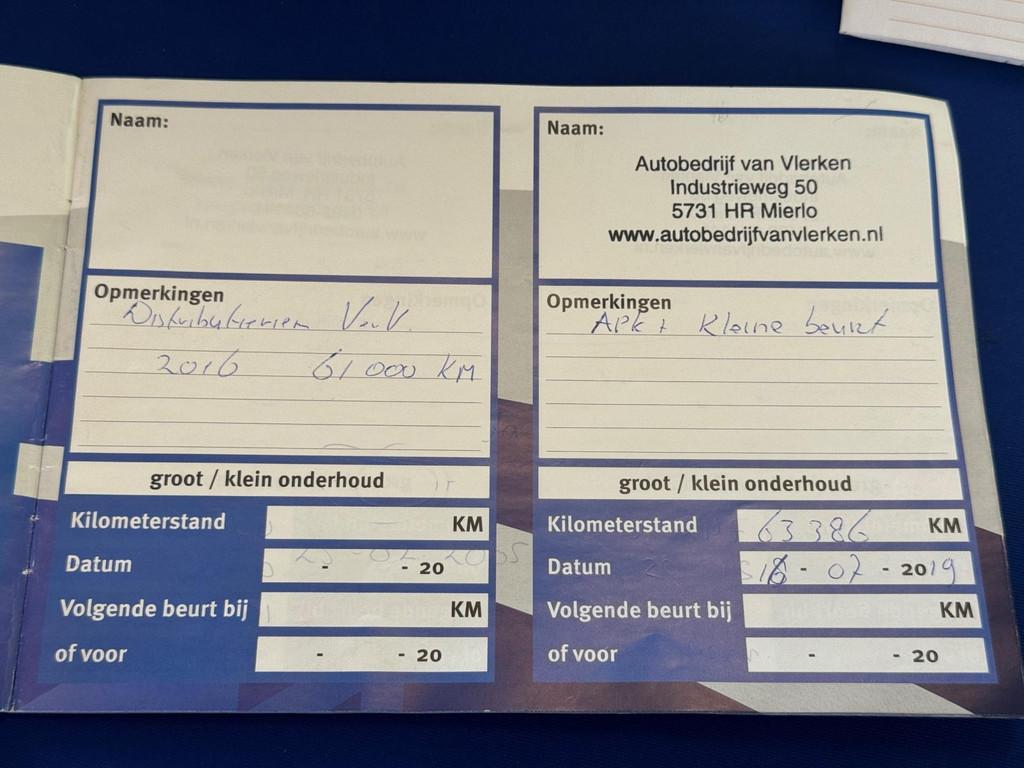 Naam:
Opmerkingen
Distributieriem Verv.
2016 61000 KM
groot / klein onderhoud
Kilometerstand KM
Datum - - 20
Volgende beurt bij KM
of voor - - 20
Naam:
Autobedrijf van Vlerken
Industrieweg 50
5731 HR Mierlo
www.autobedrijfvanvlerken.nl
Opmerkingen
APK + Kleine beurt
groot / klein onderhoud
Kilometerstand 63386 KM
Datum - 07 - 2019
Volgende beurt bij KM
of voor - - 20